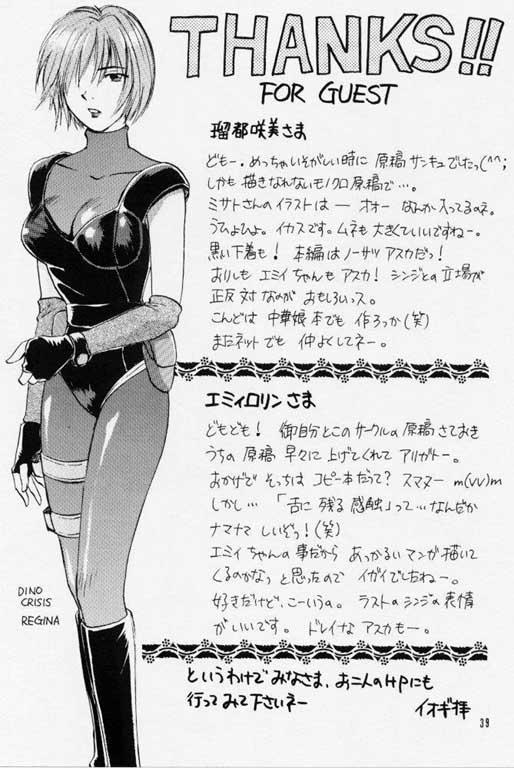 THANKS!!
FOR GUEST
瑠都咲美さま
どもー。めっちゃいそがしい時に 原稿 サンキュでしたっ(^^;
しかも描きなれないモノクロ原稿で…。
ミサトさんのイラストは ― オオー なんか入ってるのネ。
うひょひょ。イカスです。ムネも大きくていいですねー。
黒い下着も! 本編はノーサツ アスカだっ!
おりしも エミイちゃんもアスカ! シンジとの立場が
正反対なのが おもしろいっス。
こんどは 中華娘本でも 作ろっか(笑)
またネットでも 仲よくしてネー。
エミィロリン さま
どもども! 御自分とこのサークルの原稿さておき
うちの原稿 早々に上げてくれて アリガトー。
おかげで そっちは コピー本だって? スマヌー m(vv)m
しかし… 「舌に残る感触」って…なんだか
ナマナマしいぞっ!(笑)
エミイちゃんの事だから あっかるいマンガ描いて
くるのかなっと思ったので イガイでしたねー。
好きだけど、こーいうの。 ラストのシンジの表情
がいいです。 ドレイなアスカもー。
DINO
CRISIS
REGINA
というわけでみなさま、お二人のHPにも
行ってみて下さいネー
イオギ拝
39